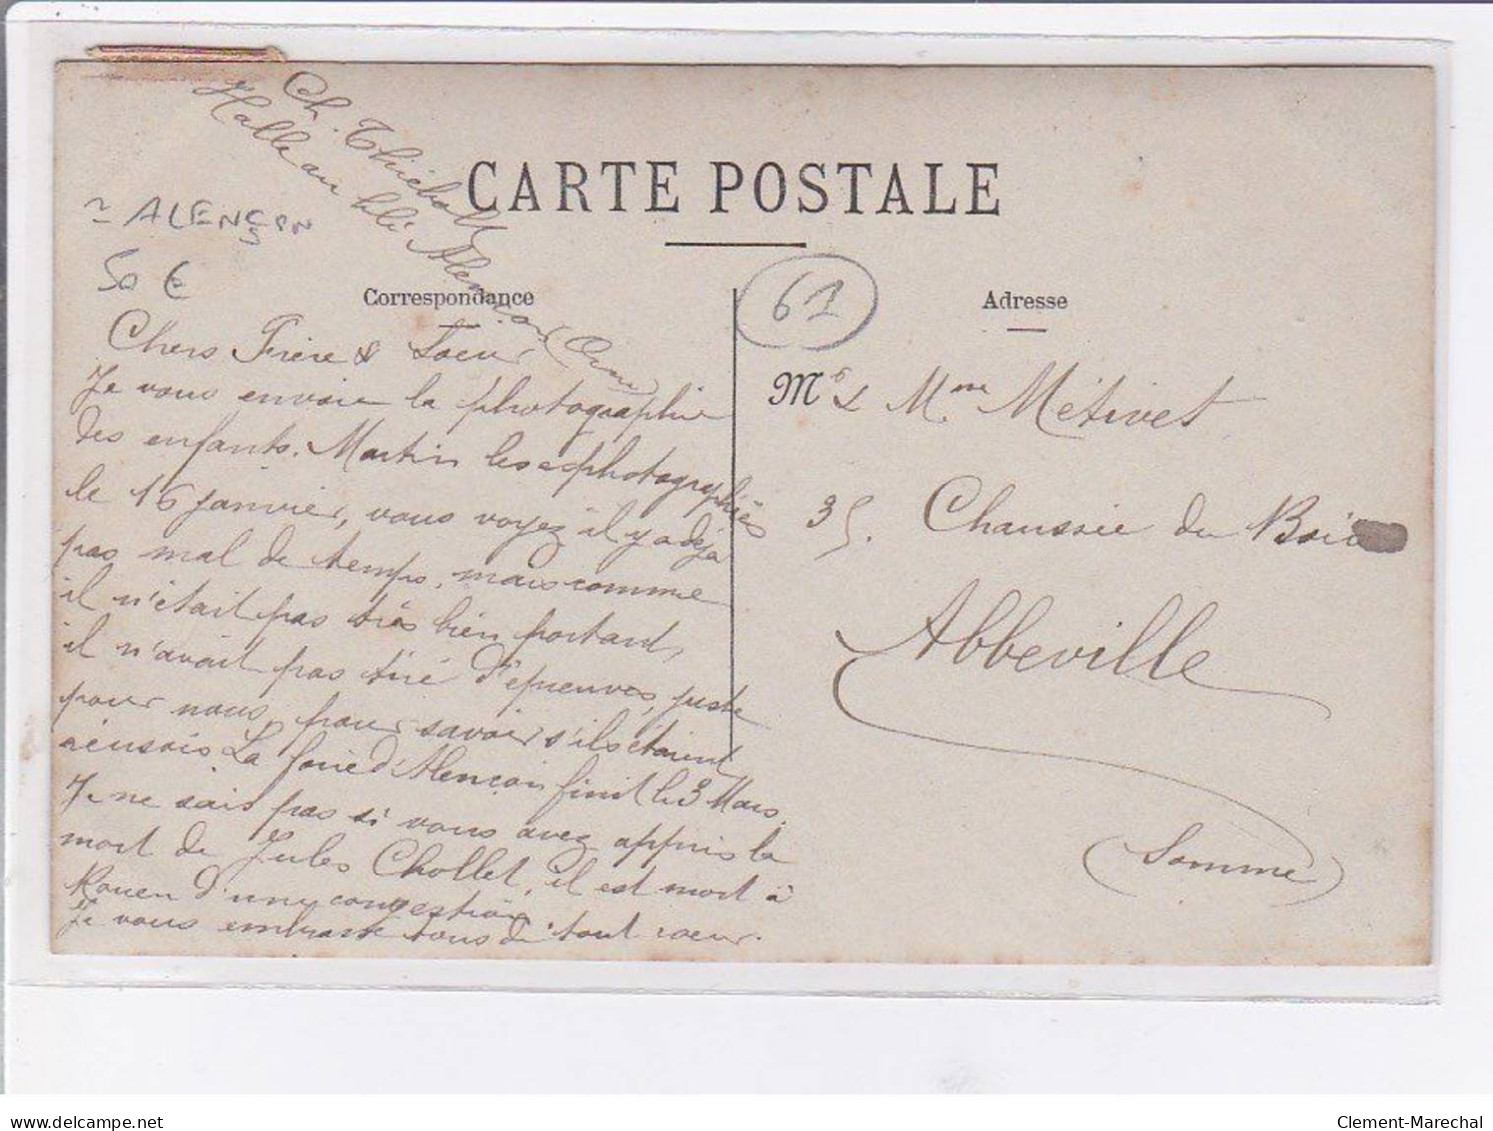 Ch. Thiébault
Halle au blé Alençon (Orne)
CARTE POSTALE
ALENÇON
50 €
Correspondance
61
Adresse
Chers Frère & Soeur
Je vous envoie la photographie
des enfants. Martin les a photographiés
le 16 janvier, vous voyez il y a déjà
pas mal de temps, mais comme
il n'était pas très bien portant,
il n'avait pas tiré d'épreuves, juste
pour nous, pour savoir s'ils étaient
réussis. La foire d'Alençon finit le 3 Mars.
Je ne sais pas si vous avez appris la
mort de Jules Chollet, il est mort à
Rouen d'une congestion
Je vous embrasse tous de tout coeur.
Mr & Mme Métivet
35. Chaussée du Bois
Abbeville
(Somme)
Clement-Marechal